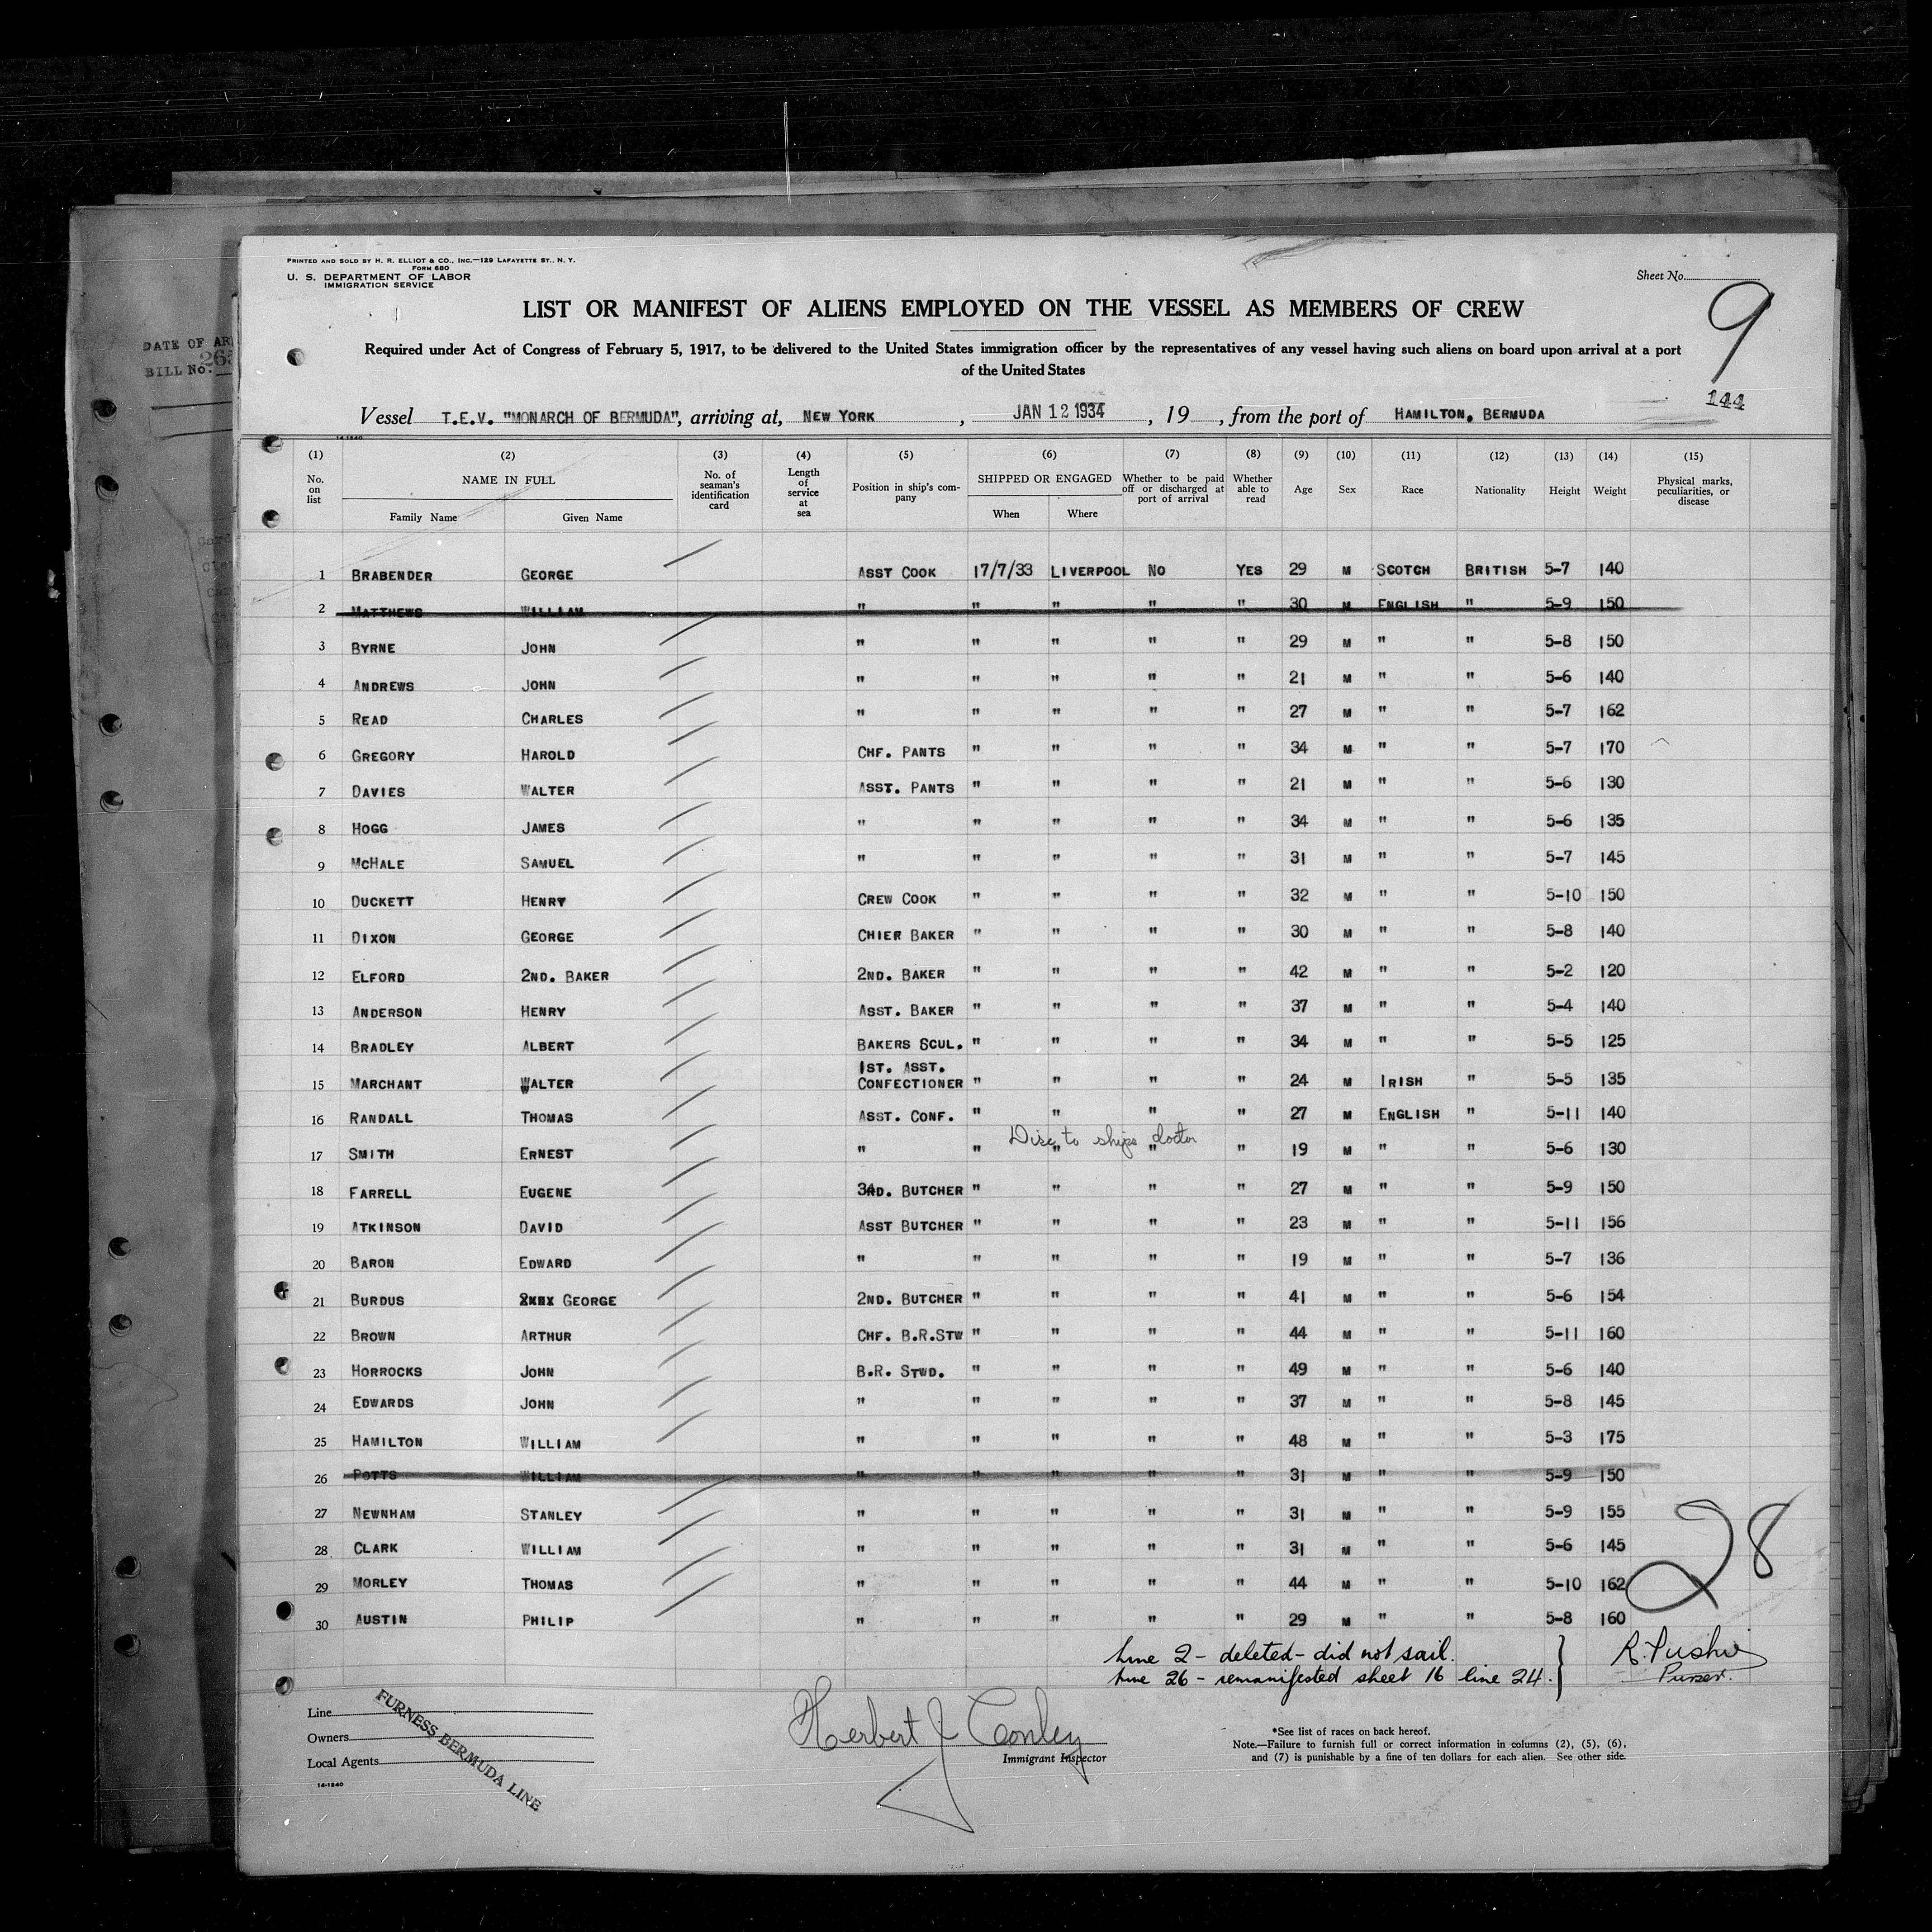 PRINTED AND SOLD BY H. R. ELLIOT & CO., INC.—129 LAFAYETTE ST., N. Y.
FORM 680
U. S. DEPARTMENT OF LABOR
IMMIGRATION SERVICE
Sheet No.
9
LIST OR MANIFEST OF ALIENS EMPLOYED ON THE VESSEL AS MEMBERS OF CREW
Required under Act of Congress of February 5, 1917, to be delivered to the United States immigration officer by the representatives of any vessel having such aliens on board upon arrival at a port
of the United States
DATE OF AR
BILL No.
144
Vessel T.E.V. "MONARCH OF BERMUDA", arriving at, NEW YORK, JAN 12 1934, 19 , from the port of HAMILTON, BERMUDA
14-1240
(1) (2) (3) (4) (5) (6) (7) (8) (9) (10) (11) (12) (13) (14) (15)
No. on list NAME IN FULL Family Name Given Name No. of seaman's identification card Length of service at sea Position in ship's company SHIPPED OR ENGAGED When Where Whether to be paid off or discharged at port of arrival Whether able to read Age Sex Race Nationality Height Weight Physical marks, peculiarities, or disease
1 BRABENDER GEORGE ASST COOK 17/7/33 LIVERPOOL NO YES 29 M SCOTCH BRITISH 5-7 140
2 MATTHEWS WILLIAM " " " " " 30 M ENGLISH " 5-9 150
3 BYRNE JOHN " " " " " 29 M " " 5-8 150
4 ANDREWS JOHN " " " " " 21 M " " 5-6 140
5 READ CHARLES " " " " " 27 M " " 5-7 162
6 GREGORY HAROLD CHF. PANTS " " " " 34 M " " 5-7 170
7 DAVIES WALTER ASST. PANTS " " " " 21 M " " 5-6 130
8 HOGG JAMES " " " " " 34 M " " 5-6 135
9 MCHALE SAMUEL " " " " " 31 M " " 5-7 145
10 DUCKETT HENRY CREW COOK " " " " 32 M " " 5-10 150
11 DIXON GEORGE CHIEF BAKER " " " " 30 M " " 5-8 140
12 ELFORD 2ND. BAKER 2ND. BAKER " " " " 42 M " " 5-2 120
13 ANDERSON HENRY ASST. BAKER " " " " 37 M " " 5-4 140
14 BRADLEY ALBERT BAKERS SCUL. " " " " 34 M " " 5-5 125
15 MARCHANT WALTER 1ST. ASST. CONFECTIONER " " " " 24 M IRISH " 5-5 135
16 RANDALL THOMAS ASST. CONF. " " " " 27 M ENGLISH " 5-11 140
Disc to ships doctor
17 SMITH ERNEST " " " " " 19 M " " 5-6 130
18 FARRELL EUGENE 3RD. BUTCHER " " " " 27 M " " 5-9 150
19 ATKINSON DAVID ASST BUTCHER " " " " 23 M " " 5-11 156
20 BARON EDWARD " " " " " 19 M " " 5-7 136
21 BURDUS GEORGE 2ND. BUTCHER " " " " 41 M " " 5-6 154
22 BROWN ARTHUR CHF. B.R.STW " " " " 44 M " " 5-11 160
23 HORROCKS JOHN B.R. STWD. " " " " 49 M " " 5-6 140
24 EDWARDS JOHN " " " " " 37 M " " 5-8 145
25 HAMILTON WILLIAM " " " " " 48 M " " 5-3 175
26 POTTS WILLIAM " " " " " 31 M " " 5-9 150
27 NEWNHAM STANLEY " " " " " 31 M " " 5-9 155
28 CLARK WILLIAM " " " " " 31 M " " 5-6 145
29 MORLEY THOMAS " " " " " 44 M " " 5-10 162
30 AUSTIN PHILIP " " " " " 29 M " " 5-8 160
28
Line 2 - deleted - did not sail.
Line 26 - remanifested sheet 16 line 24.
Purser.
Line
Owners
Local Agents
FURNESS BERMUDA LINE
14-1240
Herbert J Conley
Immigrant Inspector
*See list of races on back hereof.
Note.—Failure to furnish full or correct information in columns (2), (5), (6),
and (7) is punishable by a fine of ten dollars for each alien. See other side.